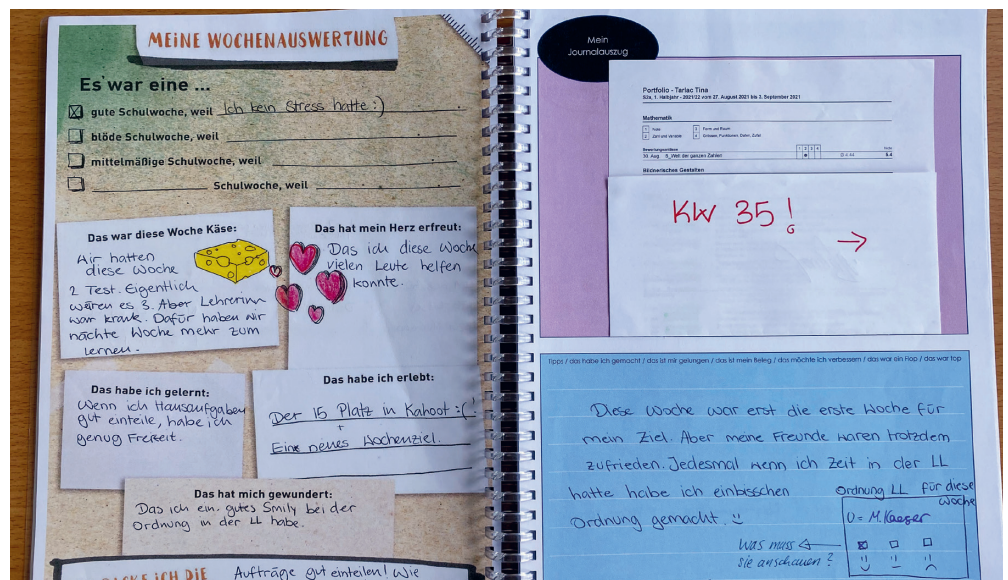 MEINE WOCHENAUSWERTUNG
Es war eine ...
gute Schulwoche, weil Ich kein Stress hatte :)
blöde Schulwoche, weil
mittelmäßige Schulwoche, weil
Schulwoche, weil
Das war diese Woche Käse:
Wir hatten
diese Woche
2 Test. Eigentlich
wären es 3. Aber Lehrerinn
war krank. Dafür haben wir
nächte Woche mehr zum
lernen.
Das hat mein Herz erfreut:
Das ich diese Woch
vielen Leute helfen
konnte.
Das habe ich gelernt:
Wenn ich Hausaufgaben
gut einteile, habe ich
genug Freizeit.
Das habe ich erlebt:
Der 15 Platz in Kahoot :(
+
Ein neues Wochenziel.
Das hat mich gewundert:
Das ich ein gutes Smily bei der
Ordnung in der LL habe.
ICH DIE
Aufträge gut einteilen! Wie
Mein
Journalauszug
Portfolio - Tarlac Tina
S2a, 1. Halbjahr - 2021/22 vom 27. August 2021 bis 3. September 2021
Mathematik
Form und Raum
Zahl und Variable
Größen, Funktionen, Daten, Zufall
30. Aug. S_Welt der ganzen Zahlen
Bildnerisches Gestalten
KW 35!
→
Tipps / das habe ich gemacht / das ist mir gelungen / das ist mein Beleg / das möchte ich verbessern / das war ein Flop / das war top
Diese Woche war erst die erste Woche für
mein Ziel. Aber meine Freunde waren trotzdem
zufrieden. Jedesmal wenn ich Zeit in der LL
hatte habe ich einbisschen
Ordnung gemacht.
Ordnung LL für diese
Woche
U = M. Kaeser
Was muss
sie anschauen?